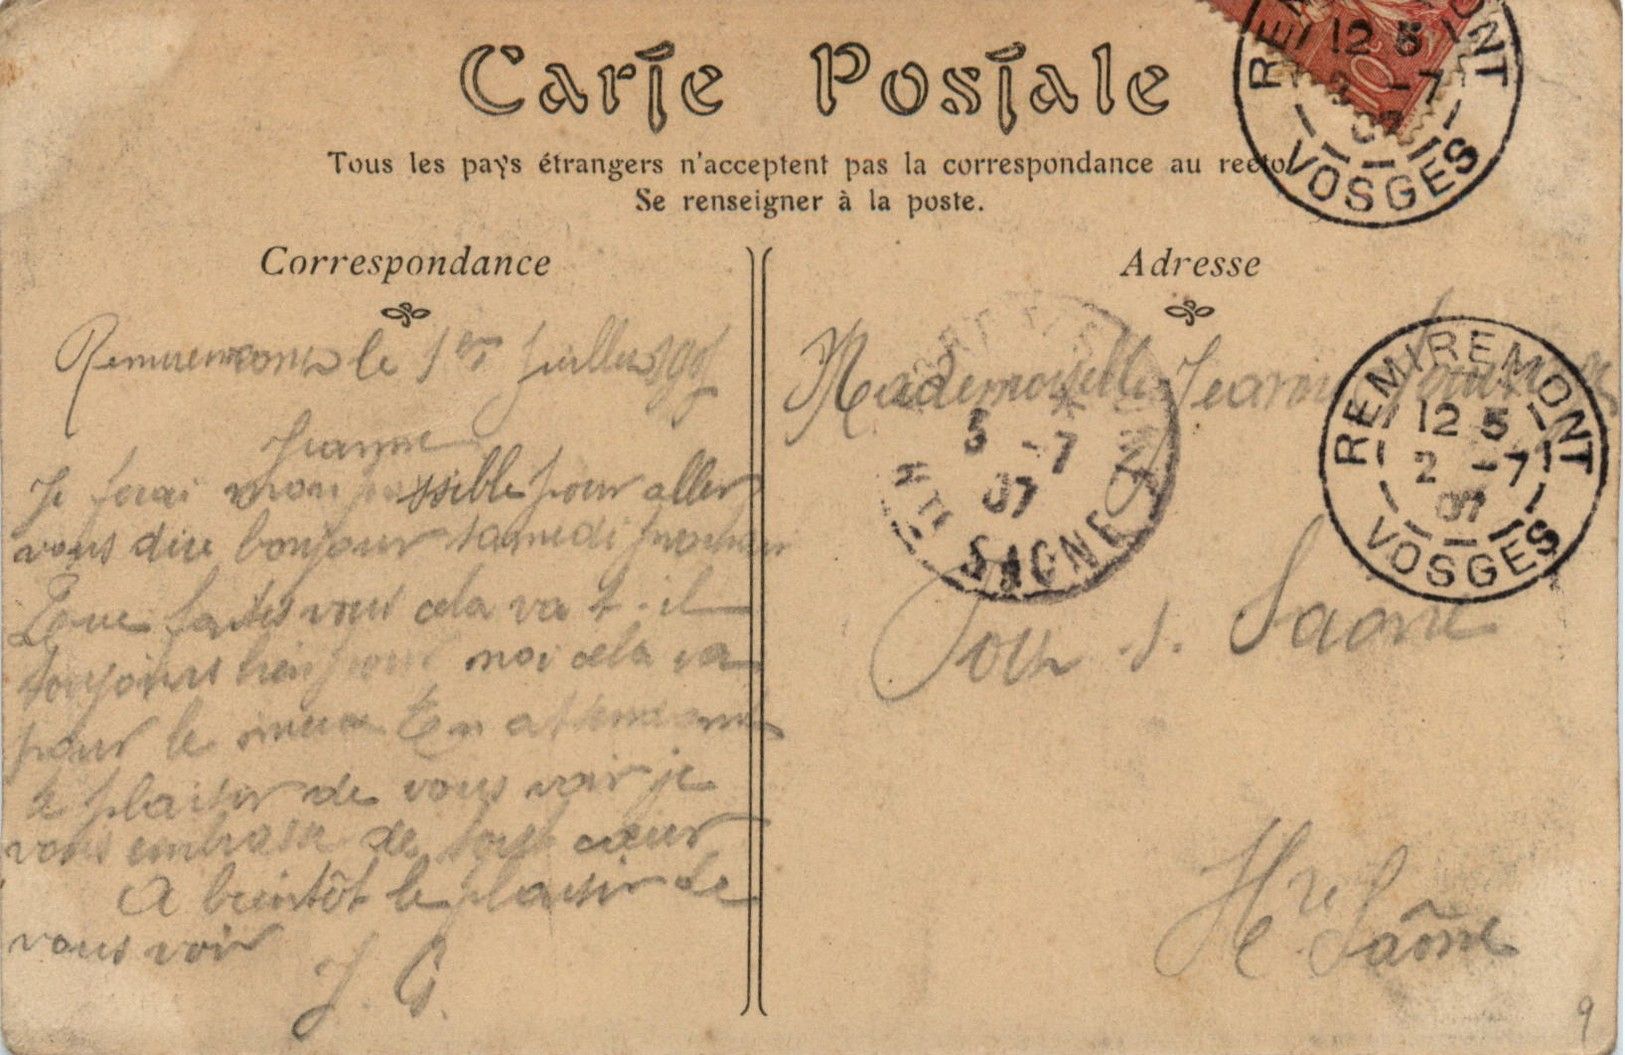 Carte Postale
Tous les pays étrangers n'acceptent pas la correspondance au recto
Se renseigner à la poste.
Correspondance
Adresse
le 1er Juillet
Jeanne
Je ferai mon possible pour aller
vous dire bonjour samedi prochain
Que faites vous cela va t-il
toujours bien pour moi cela va
pour le mieux En attendant
le plaisir de vous voir je
vous embrasse de tout cœur
A bientôt le plaisir de
vous voir
J. G.
Mademoiselle Jeanne
s. Saone
Hte Saône
REMIREMONT
12 5
2 -7
07
VOSGES
REMIREMONT
12 5
2 -7
07
VOSGES
3 -7
07
HTE SAONE
10
9